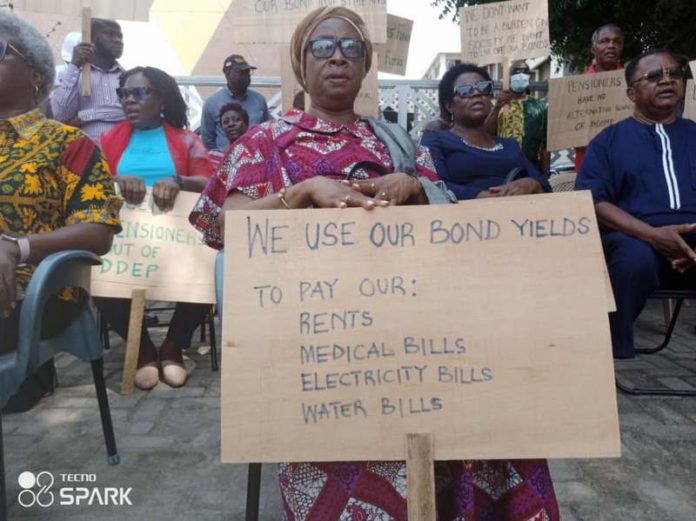 OUR BOND INVESTMENTS
WE DON'T WANT
TO BE A BURDEN ON
OFF OUR BONDS
PENSIONERS
HAVE NO
ALTERNATIVE
OF INCOME
PENSIONERS
OUT OF
DDEP
WE USE OUR BOND YIELDS
TO PAY OUR:
RENTS
MEDICAL BILLS
ELECTRICITY BILLS
WATER BILLS
TECNO
SPARK